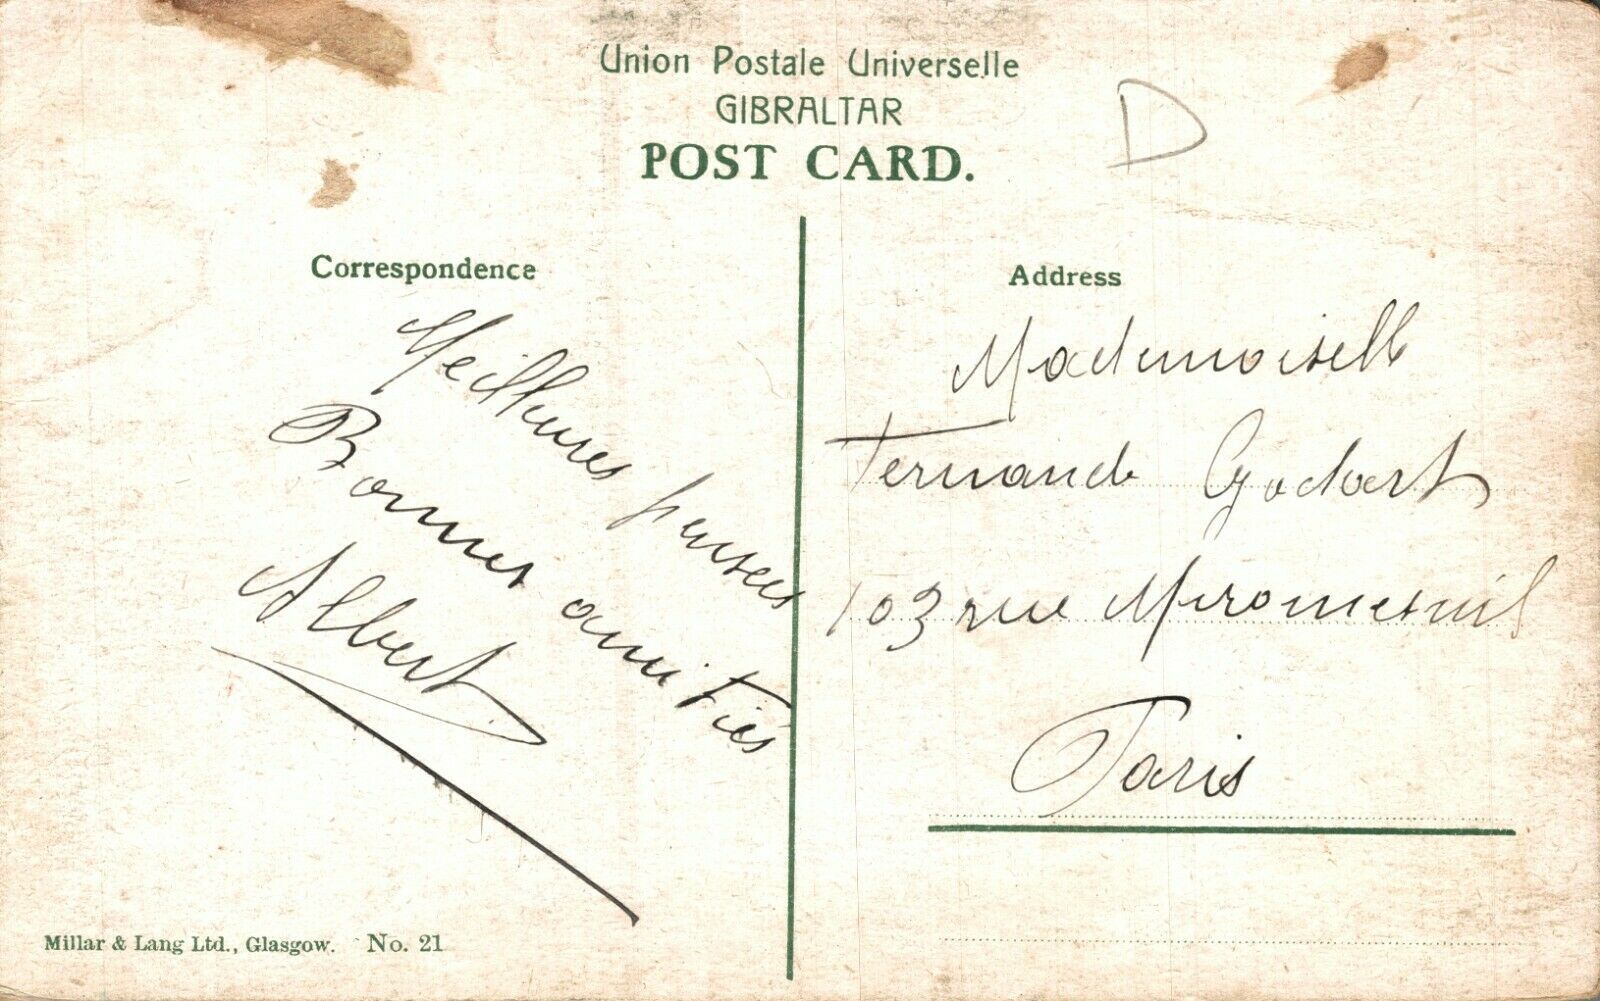 Union Postale Universelle
GIBRALTAR
POST CARD.
D
Correspondence
Meilleures pensées
Bonnes amitiés
Albert
Address
Mademoiselle
Fernande Godart
103 rue Miromesnil
Paris
Millar & Lang Ltd., Glasgow. No. 21